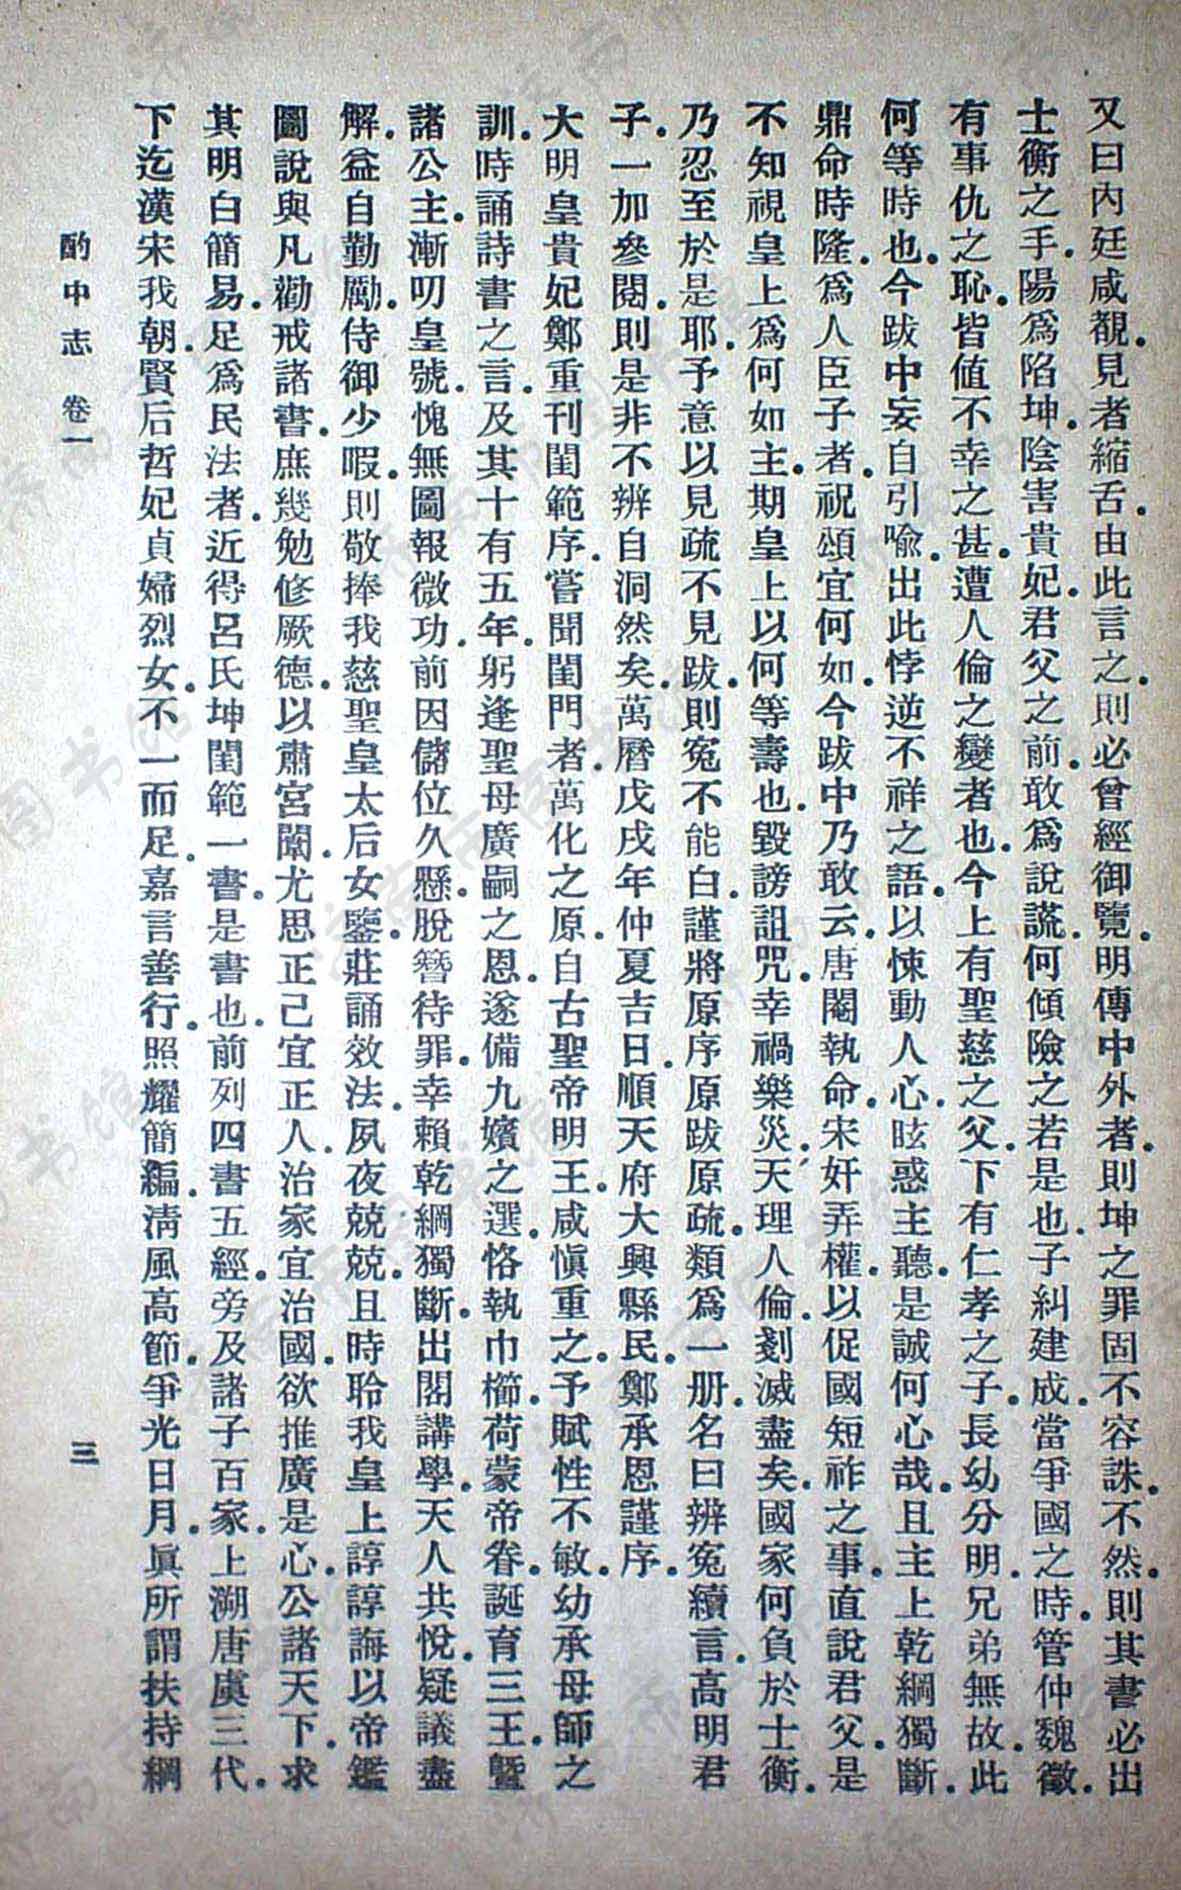 又曰內廷咸覩見者縮舌由此言之則必曾經御覽明傳中外者則坤之罪固不容誅不然則其書必出
士衡之手陽爲陷坤陰害貴妃君父之前敢爲說謊何傾險之若是也子糾建成當爭國之時管仲魏徵
有事仇之恥皆值不幸之甚遭人倫之變者也今上有聖慈之父下有仁孝之子長幼分明兄弟無故此
何等時也今跋中妄自引喻出此悖逆不祥之語以悚動人心眩惑主聽是誠何心哉且主上乾綱獨斷
鼎命時隆爲人臣子者祝頌宜何如今跋中乃敢云唐闇執命宋奸弄權以促國短祚之事直說君父是
不知視皇上爲何如主期皇上以何等壽也毀謗詛咒幸禍樂災天理人倫剗滅盡矣國家何負於士衡
乃忍至於是耶予意以見疏不見跋則冤不能白謹將原序原跋原疏類爲一册名曰辨冤續言高明君
子一加參閱則是非不辨自洞然矣萬曆戊戌年仲夏吉日順天府大興縣民鄭承恩謹序
大明皇貴妃鄭重刊閨範序嘗聞閨門者萬化之原自古聖帝明王咸愼重之予賦性不敏幼承母師之
訓時誦詩書之言及其十有五年躬逢聖母廣嗣之恩遂備九嬪之選恪執巾櫛荷蒙帝眷誕育三王暨
諸公主漸叨皇號愧無圖報微功前因儲位久懸脫簪待罪幸賴乾綱獨斷出閣講學天人共悅疑議盡
解益自勤勵侍御少暇則敬捧我慈聖皇太后女鑒莊誦效法夙夜兢兢且時聆我皇上諄諄誨以帝鑑
圖說與凡勸戒諸書庶幾勉修厥德以肅宮闈尤思正己宜正人治家宜治國欲推廣是心公諸天下求
其明白簡易足爲民法者近得呂氏坤閨範一書是書也前列四書五經旁及諸子百家上溯唐虞三代
下迄漢宋我朝賢后哲妃貞婦烈女不一而足嘉言善行照耀簡編淸風高節爭光日月眞所謂扶持綱
酌中志 卷一 三